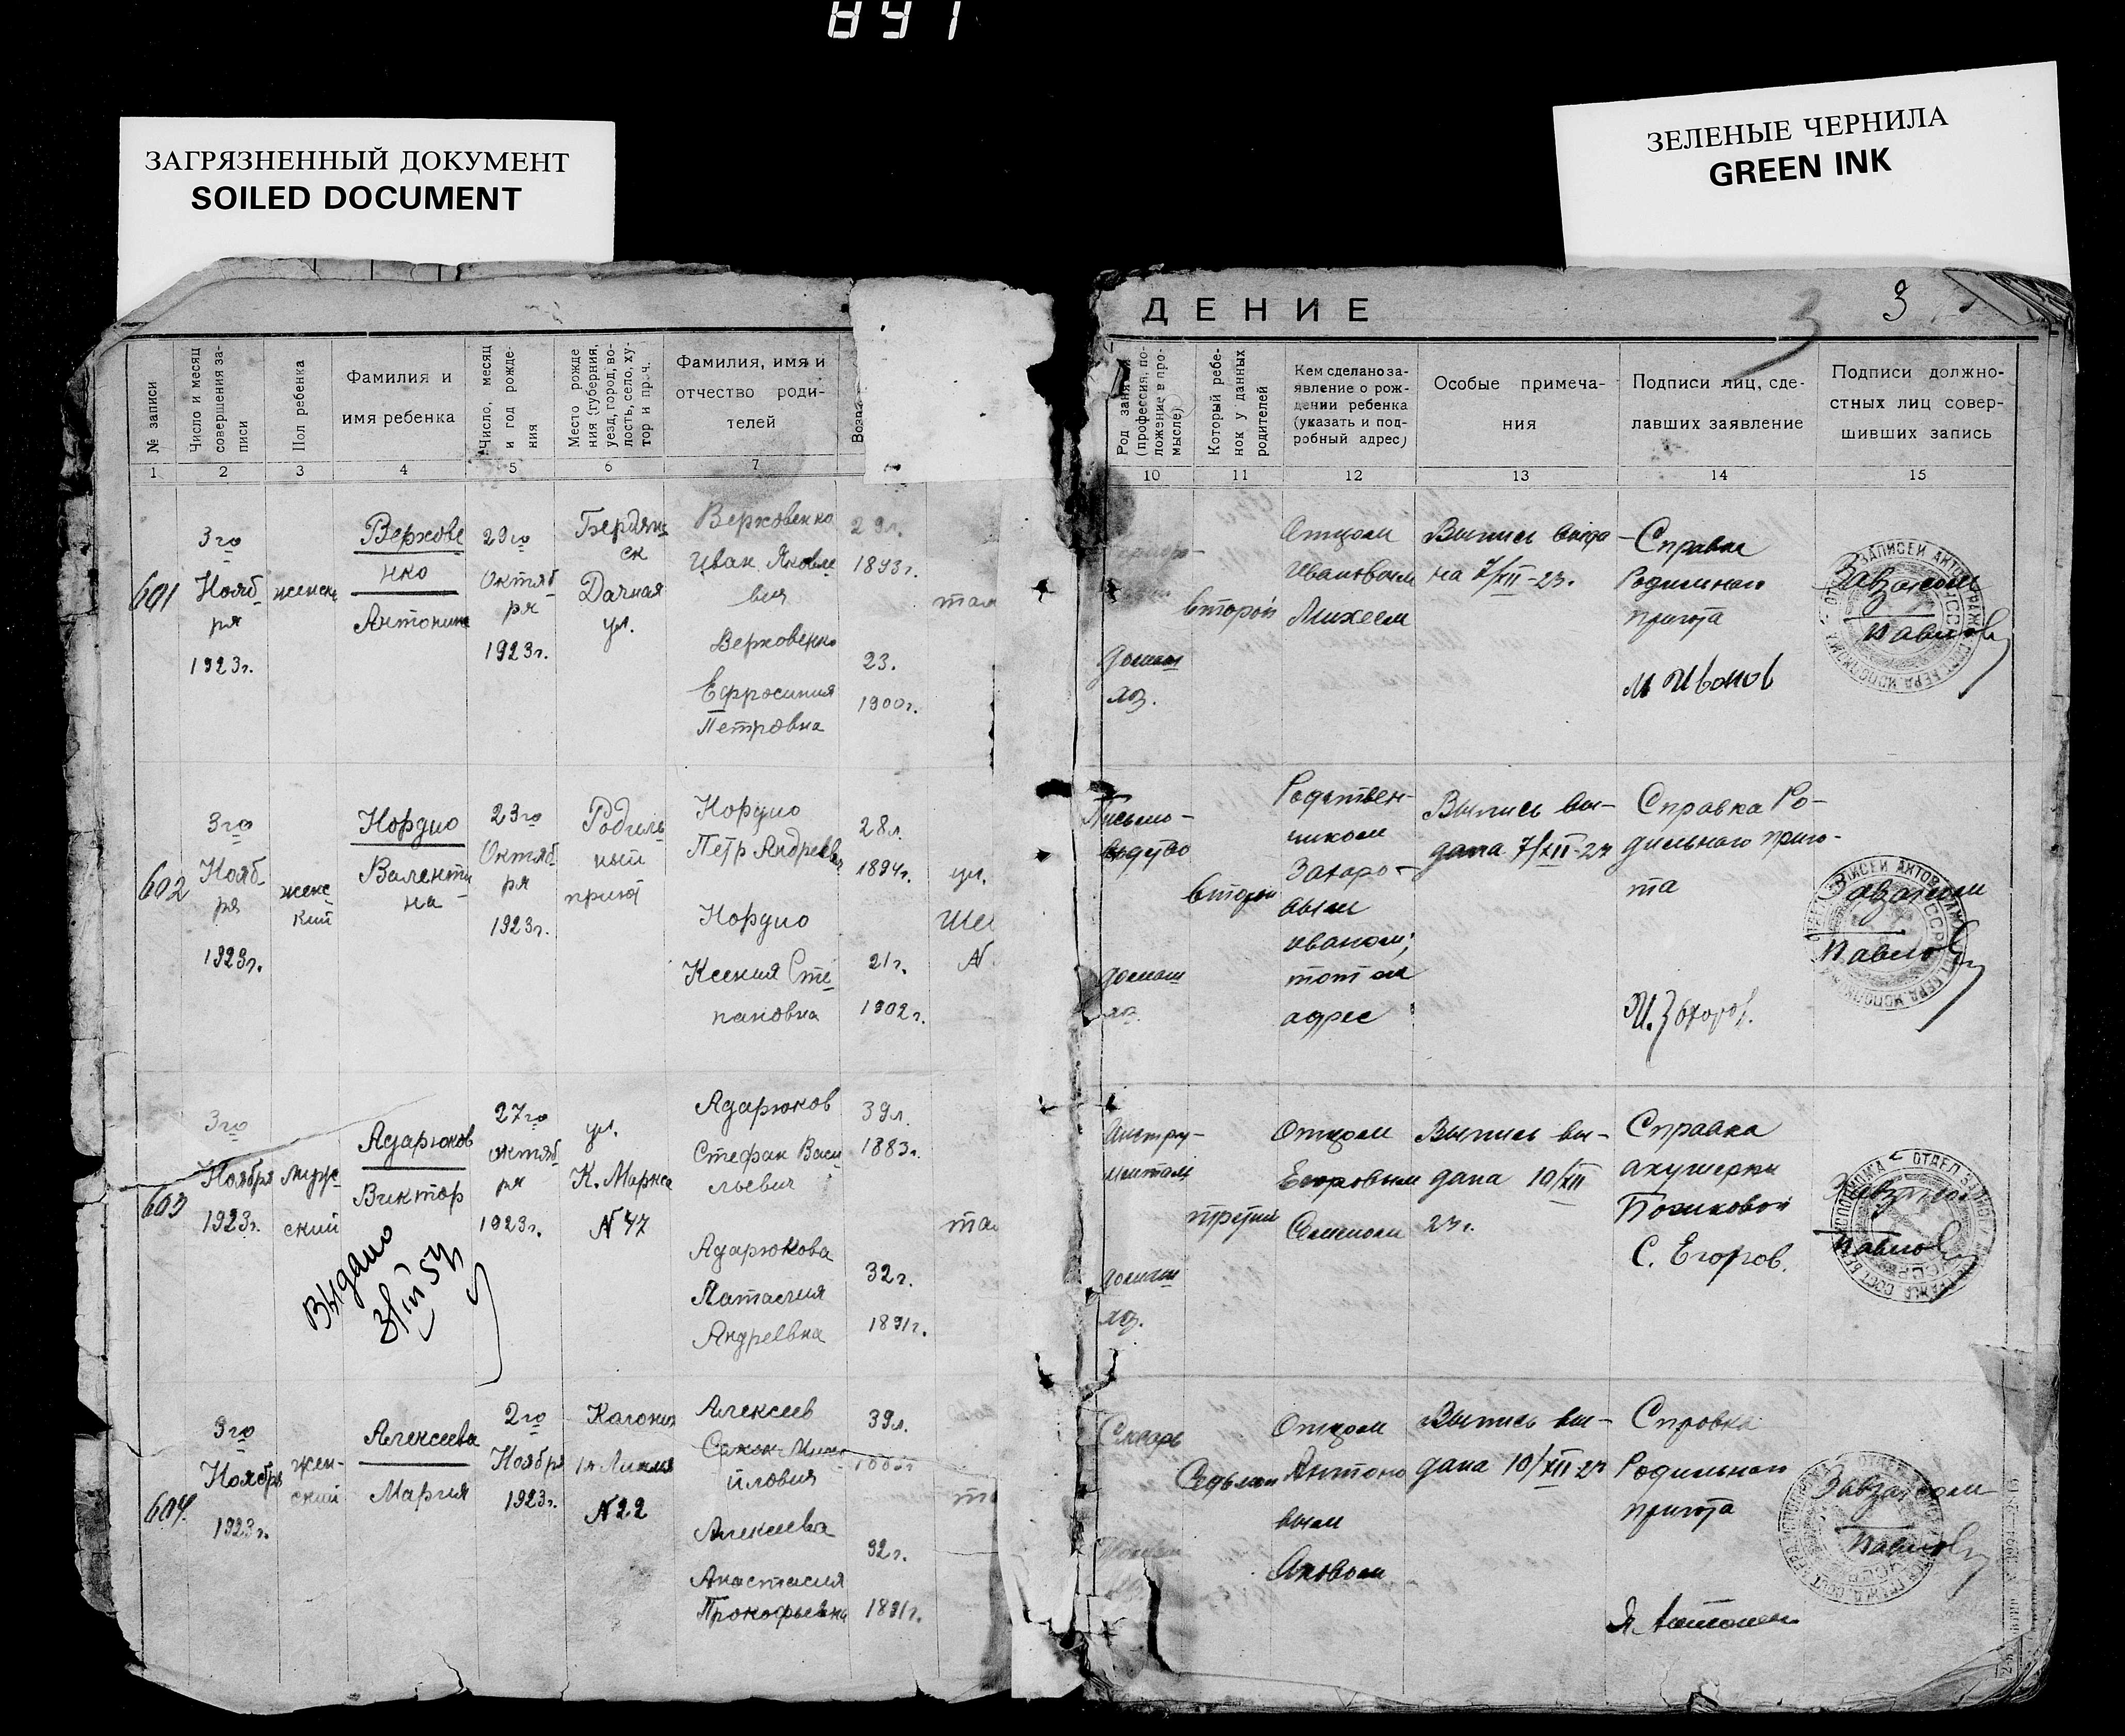 891
ЗАГРЯЗНЕННЫЙ ДОКУМЕНТ
SOILED DOCUMENT
ЗЕЛЕНЫЕ ЧЕРНИЛА
GREEN INK
ДЕНИЕ
3
3
№ записи
Число и месяц
совершения за-
писи
Пол ребенка
Фамилия и
имя ребенка
Число, месяц
и год рожде-
ния
Место рожде
ния (губерния,
уезд, город, во-
лость, село, ху-
тор и пр.ч.
Фамилия, имя и
отчество роди-
телей
Возра
Род занятий
(профессия, по-
ложение в про-
мысле)
Который ребе-
нок у данных
родителей
Кем сделано за-
явление о рож-
дении ребенка
(указать и под-
робный адрес)
Особые примеча-
ния
Подписи лиц, сде-
лавших заявление
Подписи должно-
стных лиц совер-
шивших запись
1 2 3 4 5 6 7 10 11 12 13 14 15
601
3го
Нояб-
ря
1923г.
женск
Верхове
нко
Антонина
29го
Октяб
ря
1923г.
Бердян-
ск
Дачная
ул.
Верховенко
Иван Яковле
вич
Верховенко
Ефросиния
Петровна
29л.
1893г.
23.
1900г.
там
домаш
хоз.
второй
Отцом
Ивановым
Михеем
Выпись выда-
на 7/XII-23.
Справка
Родильного
приюта
М Иванов
Завзагсом
Павлов
602
3го
Нояб-
ря
1923г.
женс-
кий
Нордио
Валенти
на
23го
Октяб
ря
1923г.
Родиль
ный
приют
Нордио
Петр Андреевич
Нордио
Ксения Сте-
пановна
28л.
1894г.
21г.
1902г.
ул.
N
Письмо-
водство
домаш
хоз.
второй
Родствен-
ником
Захаро-
вым
Иваном;
тот же
адрес
Выпись вы-
дана 7/XII-23
Справка Ро-
дильного прию-
та
И. Захаров.
Завзагсом
Павлов
603
3го
Ноября
1923г.
муж-
ский
Адарюков
Виктор
Выдано
3/III 54
27го
октяб
ря
1923г.
ул.
К. Маркса
N 47
Адарюков
Стефан Васи
льевич
Адарюкова
Натаслия
Андреевна
39л.
1883г.
32г.
1891г.
там
домаш
хоз.
третий
Отцом
Егоровым
Семеном
Выпись вы-
дана 10/XII
23г.
Справка
акушерки
С. Егоров.
Завзагсом
Павлов
604
3го
Ноября
1923г.
жен-
ский
Алексеева
Мария
2го
Ноября
1923г.
Колония
1я Линия
N 22
Алексеев
йлович
Алексеева
Анастасия
Прокофьевна
39л.
32г.
1891г.
Слесарь
Седьмой
Отцом
Антоно
вым
Яковом
Выпись вы-
дана 10/XII 23
Справка
Родильного
приюта
Я. Антонов
Завзагсом
Павлов